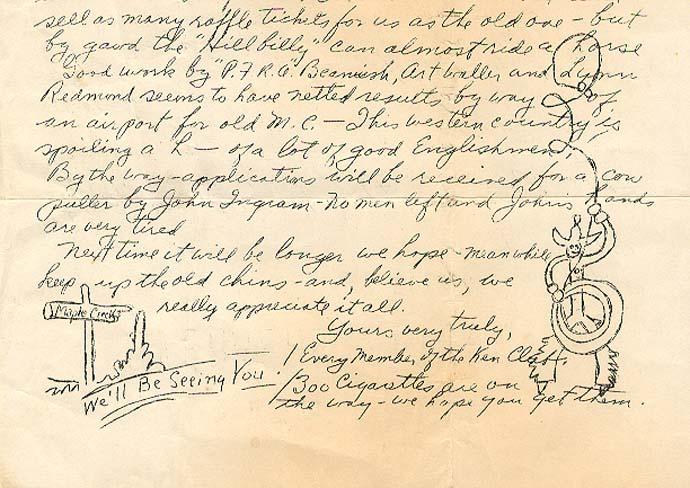 sell as many raffle tickets for us as the old one - but
by gawd the "Hillbilly" can almost ride a horse
Good work by "P.F.R.A." Beamish, Art Waller and Lynn
Redmond seems to have netted results by way of
an airport for old M.C. - This western country is
spoiling a h - of a lot of good Englishmen,
By the way - applications will be received for a cow
puller by John Ingram - no men left and John's hands
are very tired
Next time it will be longer we hope - meanwhile
keep up the old chins - and, believe us, we
really appreciate it all.
Yours very truly,
Every Member of the Ken Club.
300 Cigarettes are on
the way - we hope you get them.
Maple Creek
We'll Be Seeing You!